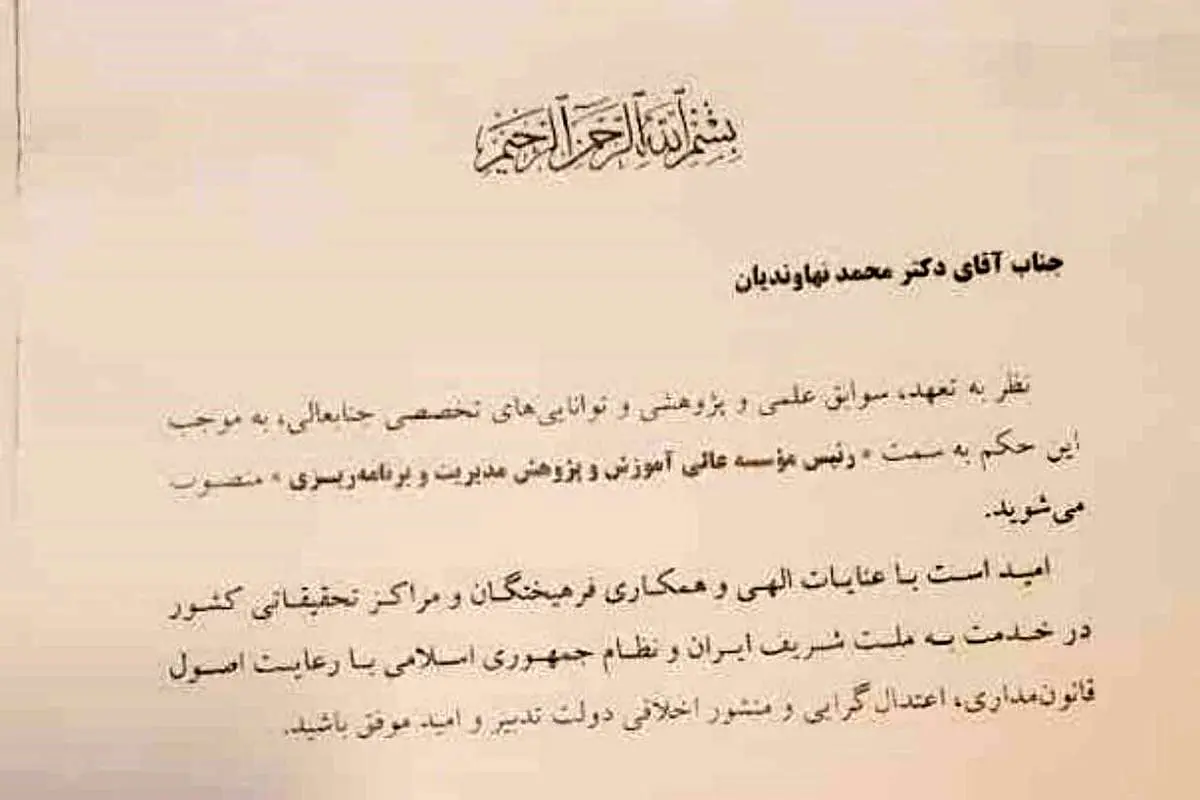 بسم الله الرحمن الرحیم
جناب آقای دکتر محمد نهاوندیان
نظر به تعهد، سوابق علمی و پژوهشی و توانایی‌های تخصصی جنابعالی، به موجب
این حکم به سمت « رئیس مؤسسه عالی آموزش و پژوهش مدیریت و برنامه‌ریزی » منصوب
می‌شوید.
امید است با عنایات الهی و همکاری فرهیختگان و مراکز تحقیقاتی کشور
در خدمت به ملت شریف ایران و نظام جمهوری اسلامی با رعایت اصول
قانون‌مداری، اعتدال‌گرایی و منشور اخلاقی دولت تدبیر و امید موفق باشید.